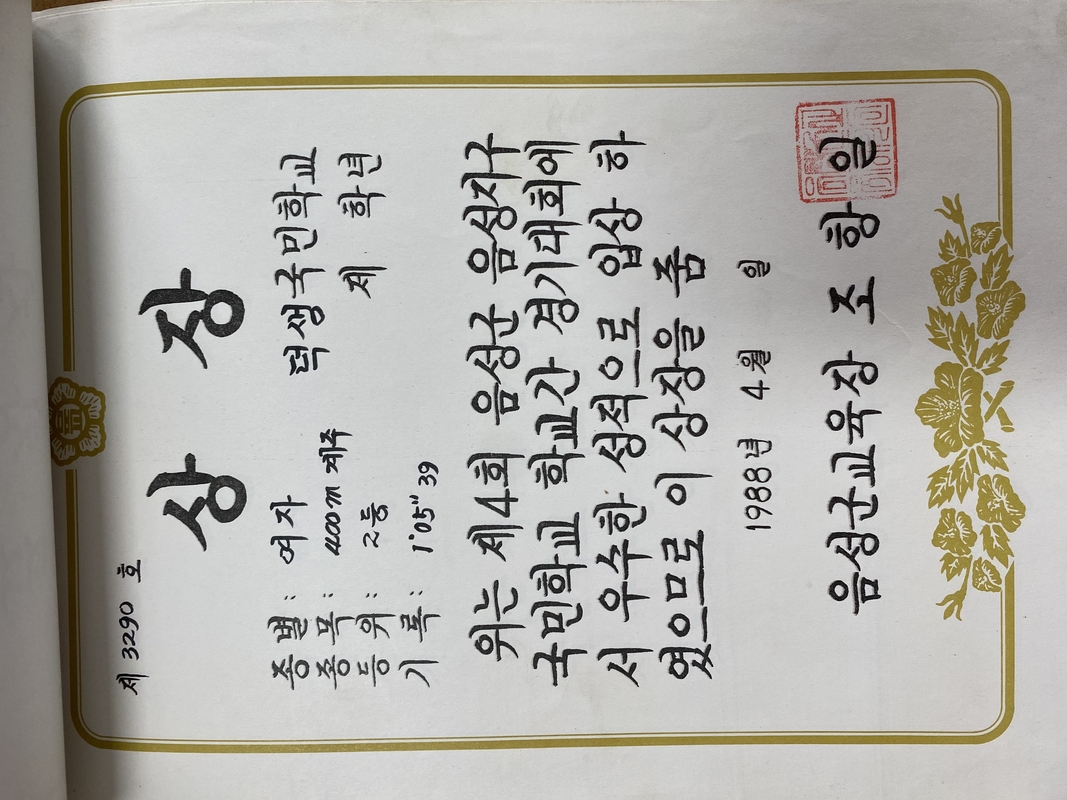 제 3290 호
상 장
덕생국민학교
제 학년
종별: 여자
종목: 400m 계주
등위: 2등
기록: 1'05"39
위는 제4회 음성군 음성지구
국민학교 학교간 경기대회에
서 우수한 성적으로 입상 하
였으므로 이 상장을 줌
1988년 4월 일
음성군교육장 조 항 일